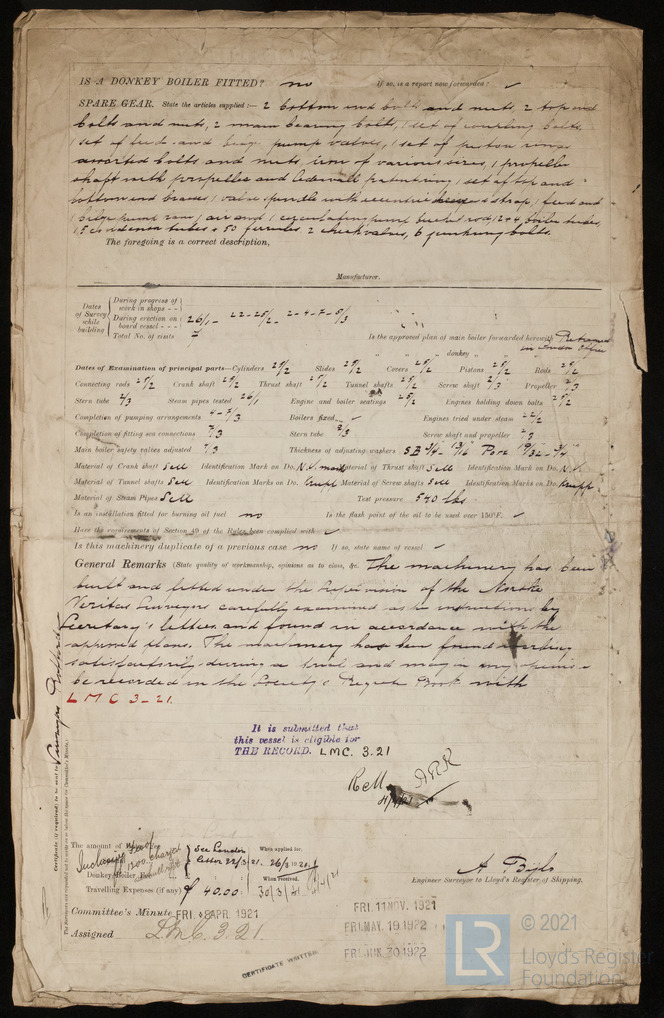 IS A DONKEY BOILER FITTED? no If so, is a report now forwarded?
SPARE GEAR. State the articles supplied:— 2 bottom end bolts and nuts, 2 top end
bolts and nuts, 2 main bearing bolts, 1 set of coupling bolts,
1 set of feed and bilge pump valves, 1 set of piston rings
assorted bolts and nuts, iron of various sizes, 1 propeller
shaft with propeller and 1 set of top and
bottom end brasses, 1 valve spindle with eccentric strap, 1 feed and
1 bilge pump ram, 1 air and 1 circulating pump bucket rod, boiler tubes,
15 condenser tubes + 50 ferrules 2 check valves, 6 bolts.
The foregoing is a correct description,
Manufacturer.
Dates of Survey while building
During progress of work in shops - -
During erection on board vessel - - - 26/1- 22-25/2- 2-4-7-8/3
Total No. of visits 7
Is the approved plan of main boiler forwarded herewith Retained in London Office
" " donkey " "
Dates of Examination of principal parts—Cylinders 25/2 Slides 25/2 Covers 25/2 Pistons 25/2 Rods 25/2
Connecting rods 25/2 Crank shaft 25/2 Thrust shaft 25/2 Tunnel shafts 25/2 Screw shaft 2/3 Propeller 2/3
Stern tube 2/3 Steam pipes tested 26/1 Engine and boiler seatings 25/2 Engines holding down bolts 25/2
Completion of pumping arrangements 4-7/3 Boilers fixed Engines tried under steam 22/2
Completion of fitting sea connections 2/3 Stern tube 2/3 Screw shaft and propeller 2/3
Main boiler safety valves adjusted 7/3 Thickness of adjusting washers SB 3/4 - 13/16 Port 19/32 - 3/4
Material of Crank shaft Steel Identification Mark on Do. N.V. Material of Thrust shaft Steel Identification Mark on Do. N.V.
Material of Tunnel shafts Steel Identification Marks on Do. Krupp Material of Screw shafts Steel Identification Marks on Do. Krupp
Material of Steam Pipes Steel Test pressure 540 lbs
Is an installation fitted for burning oil fuel no Is the flash point of the oil to be used over 150°F. ✓
Have the requirements of Section 49 of the Rules been complied with ✓
Is this machinery duplicate of a previous case no If so, state name of vessel ✓
General Remarks (State quality of workmanship, opinions as to class, &c. The machinery has been
built and fitted under the supervision of the Norske
Veritas Surveyors carefully examined as per instructions by
Secretary's letters and found in accordance with the
approved plans. The machinery has been found working
satisfactorily during a trial and may in my opinion
be recorded in the Society's Register Book with
LMC 3-21.
It is submitted that
this vessel is eligible for
THE RECORD. LMC. 3.21
Certificate (if required) to be sent to
The Surveyors are requested not to write on or below the space for Committee's Minute.
The amount of Entry Fee
Inclusive charged
See London
letter 22/3/21.
When applied for, 26/3 1921
Donkey Boiler Fee
When received, 30/3/21
Travelling Expenses (if any) £ 40.00
Engineer Surveyor to Lloyd's Register of Shipping.
Committee's Minute FRI. 8 APR. 1921
FRI. 11 NOV. 1921
FRI. MAY. 19 1922
Assigned LMC. 3.21.
FRI. JUN. 30 1922
CERTIFICATE WRITTEN
LR
© 2021
Lloyd's Register
Foundation